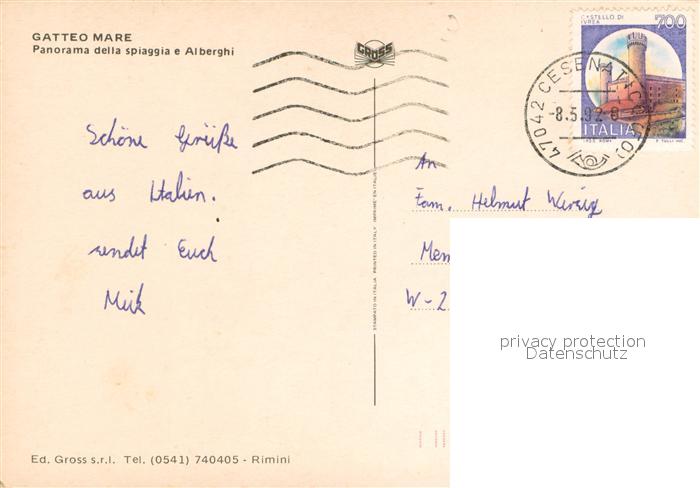 GATTEO MARE
Panorama della spiaggia e Alberghi
GROSS
CASTELLO DI
IVREA
700
ITALIA
47042 CESENATICO (FO)
-8.5.92-8
Schöne Grüße
aus Italien.
sendet Euch
Meik
An
Fam. Helmut
W-2
STAMPATO IN ITALIA PRINTED IN ITALY IMPRIMÉ EN ITALIE
privacy protection
Datenschutz
Ed. Gross s.r.l. Tel. (0541) 740405 - Rimini